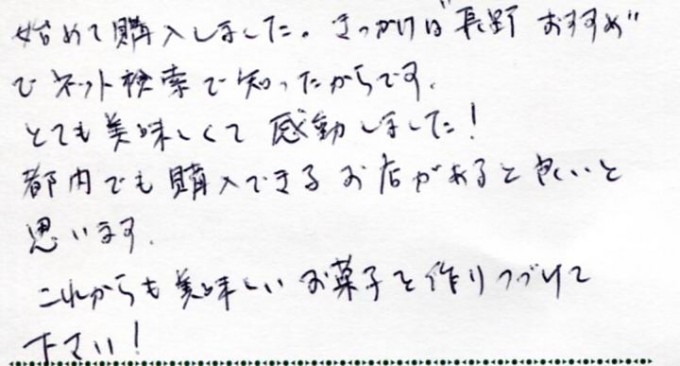 始めて購入しました。きっかけは"長野 おすすめ"
でネット検索で知ったからです。
とても美味しくて感動しました!
都内でも購入できるお店があると良いと
思います。
これからも美味しいお菓子を作りつづけて
下さい!